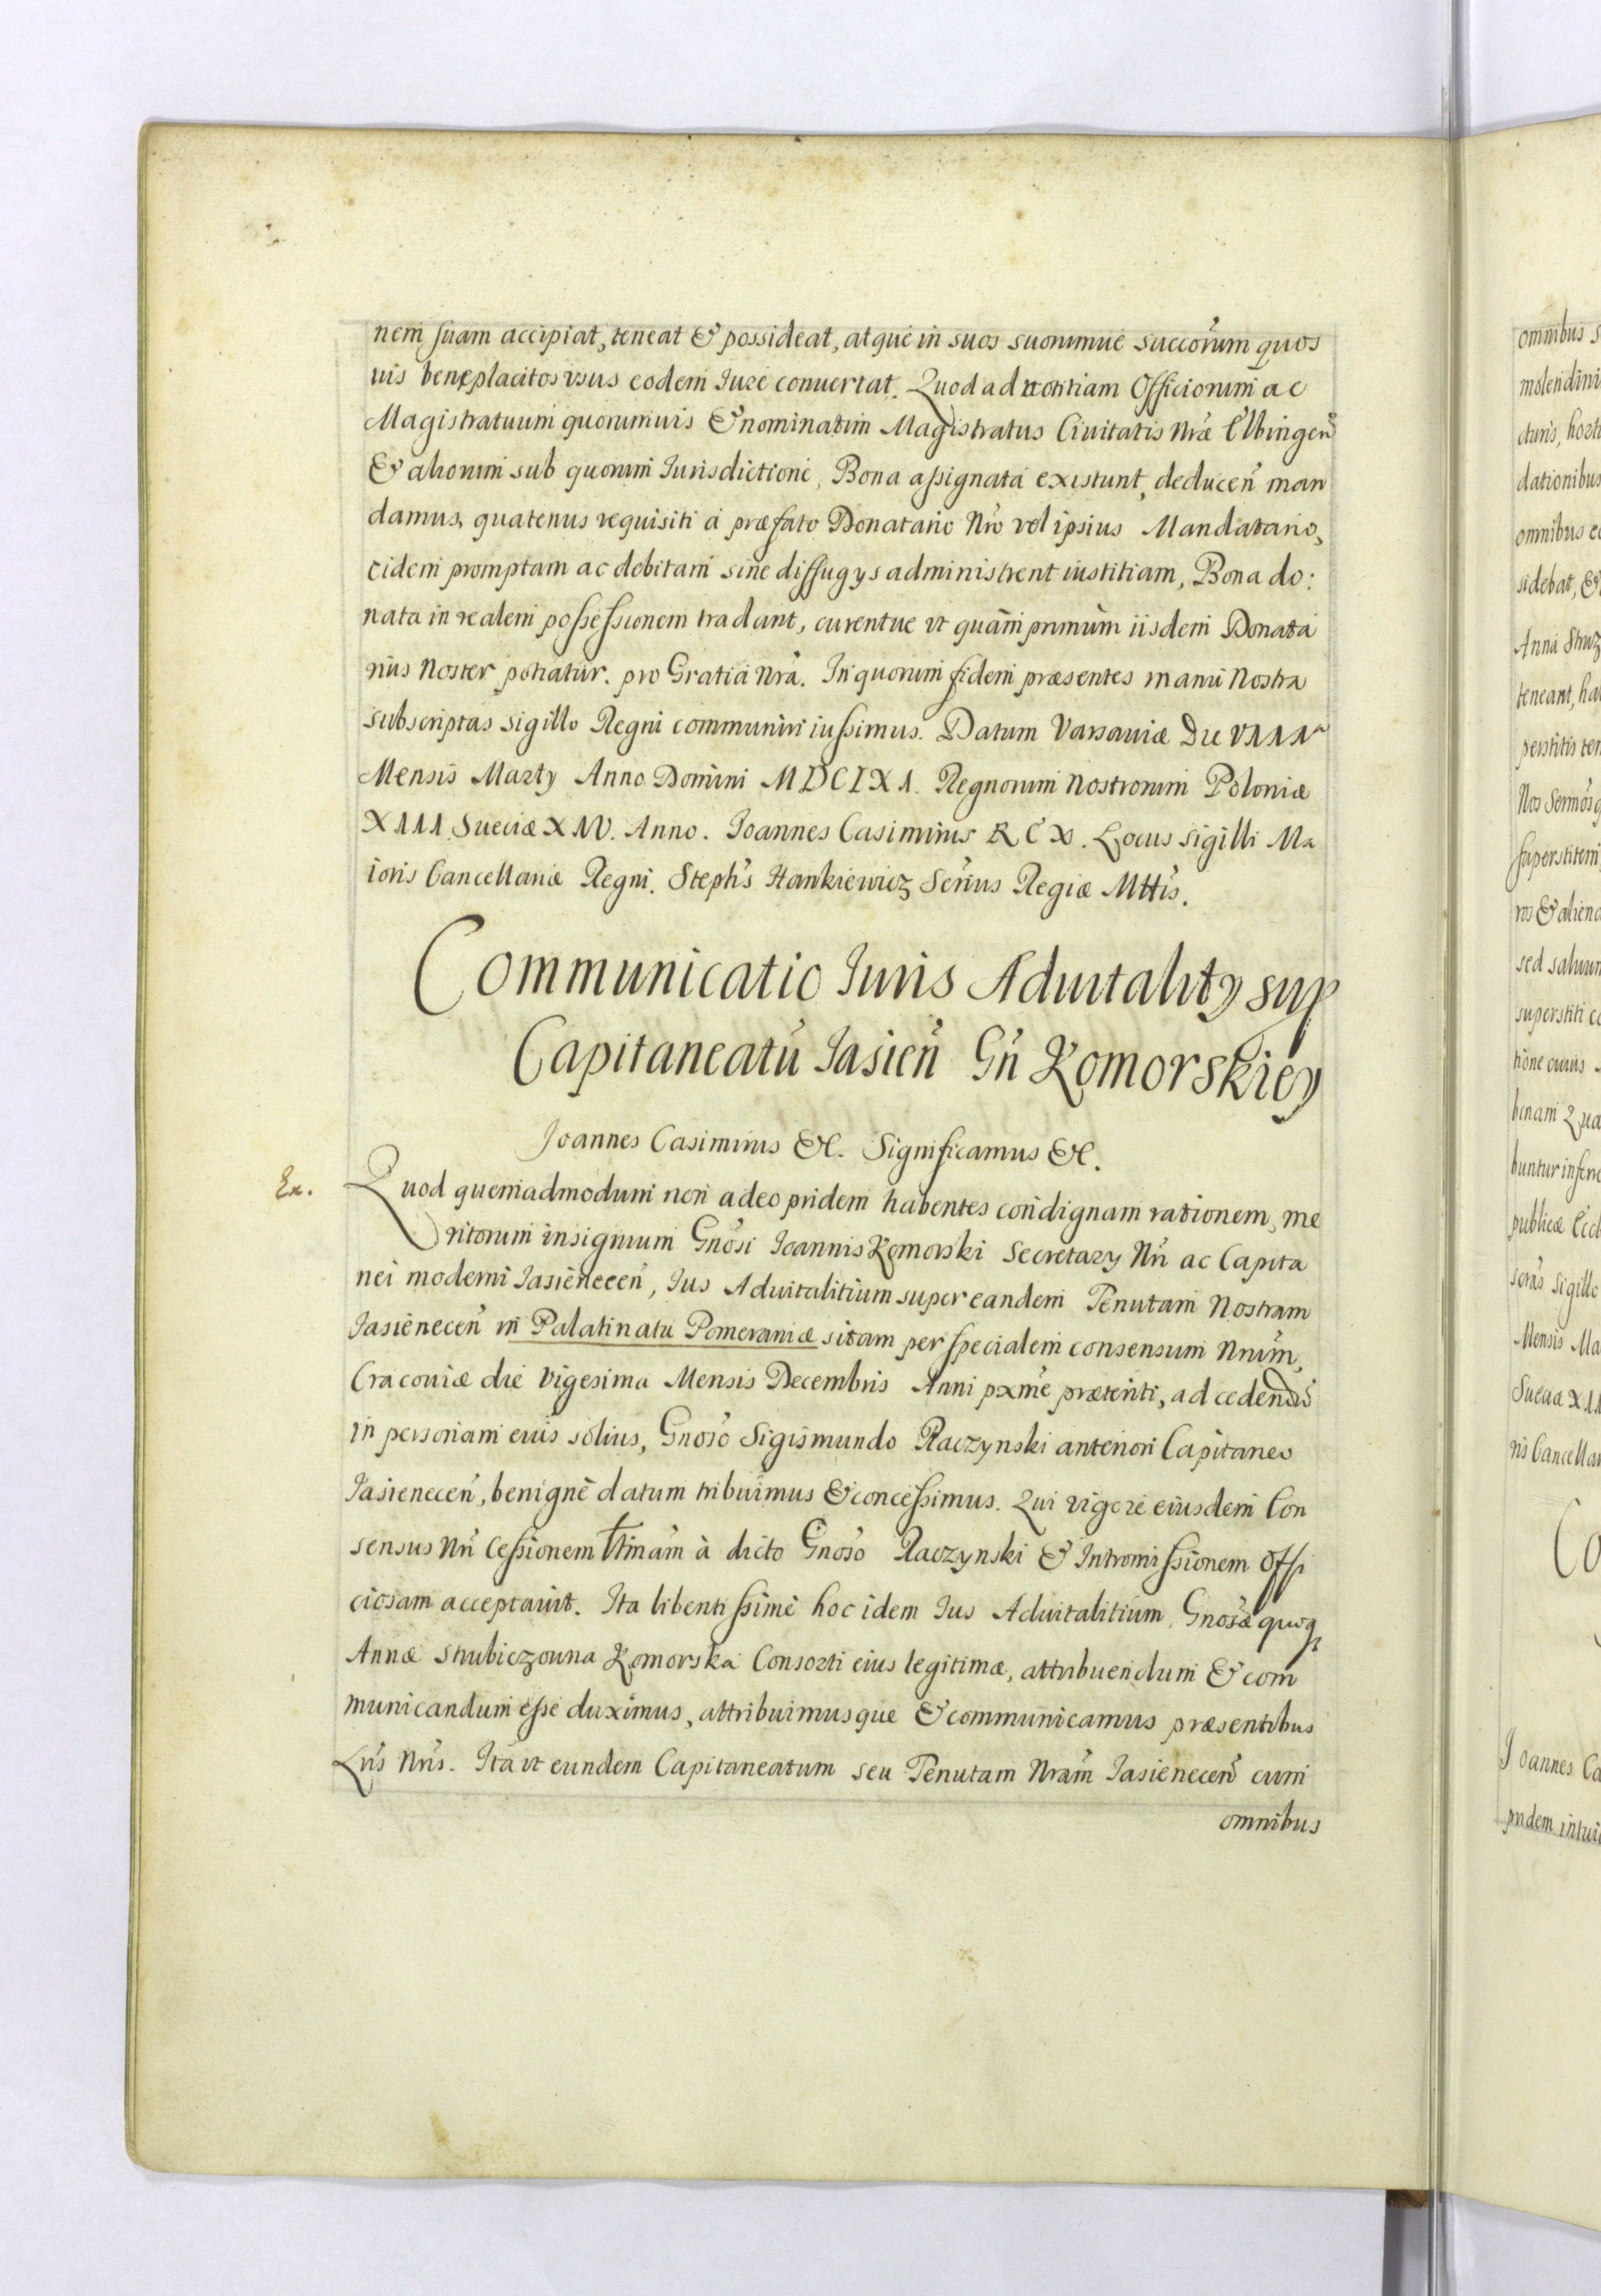 nem suam accipiat, teneat & possideat, atque in suos suorumue succorum quos
uis beneplacitos vsus eodem Iure conuertat. Quod ad notitiam Officiorum ac
Magistratuum quorumuis & nominatim Magistratus Ciuitatis Nræ Elbingen
& aliorum sub quorum Iurisdictione, Bona assignata existunt, deducen man
damus, quatenus requisiti à præfato Donatario Nro vel ipsius Mandatario,
eidem promptam ac debitam sine diffugys administrent iustitiam, Bona do:
nata in realem possessionem tradant, curentue vt quàm primùm iisdem Donata
rius Noster potiatur. pro Gratia Nra. In quorum fidem præsentes manu Nostra
subscriptas sigillo Regni communiri iussimus. Datum Varsauiæ Die VIII
Mensis Marty Anno Domini MDCIXI. Regnorum Nostrorum Poloniæ
XIII Sueciæ XIV. Anno. Ioannes Casimirus REX. Locus sigilli Ma
ioris Cancellariæ Regni. Stephs Hankiewicz Serius Regiæ Mttis.
Communicatio Iuris Aduitality sup
Capitaneatu Iasien Gn Komorskiey
Joannes Casimirus &c. Significamus &c.
Ex.
Quod quemadmodum non adeo pridem habentes condignam rationem, me
ritorum insignium Gnosi Ioannis Komorski Secretary Nri ac Capita
nei moderni Iasienecen, Ius Aduitalitium super eandem Tenutam Nostram
Iasienecen in Palatinatu Pomeraniæ sitam per specialem consensum Nrum,
Cracouiæ die Vigesima Mensis Decembris Anni pxme præteriti, ad cedendu
in personam eius solius, Gnoso Sigismundo Raczynski anteriori Capitaneo
Iasienecen, benignè datum tribuimus & concessimus. Qui vigore eiusdem Con
sensus Nri Cessionem ttimam à dicto Gnoso Raczynski & Intromissionem offi
ciosam acceptauit. Ita libentissimè hoc idem Ius Aduitalitium, Gnosæ quoq
Annæ Strubiczouna Komorska Consorti eius legitimæ, attribuendum & com
municandum esse duximus, attribuimusque & communicamus præsentibus
Lris Nris. Ita vt eundem Capitaneatum seu Tenutam Nram Iasienecen cum
omnibus
omnibus
molendini
cturis, hort
dationibus
omnibus
sidebat, &
Anna Struz
teneant, ha
perstitis
Nos
superstitem
ros & aliena
sed saluum
superstiti
tione cuius
binam Qua
buntur
publicæ
sigillo
Mensis Ma
Sueciæ XII
ris Cancellar
Co
Joannes Ca
pridem intui